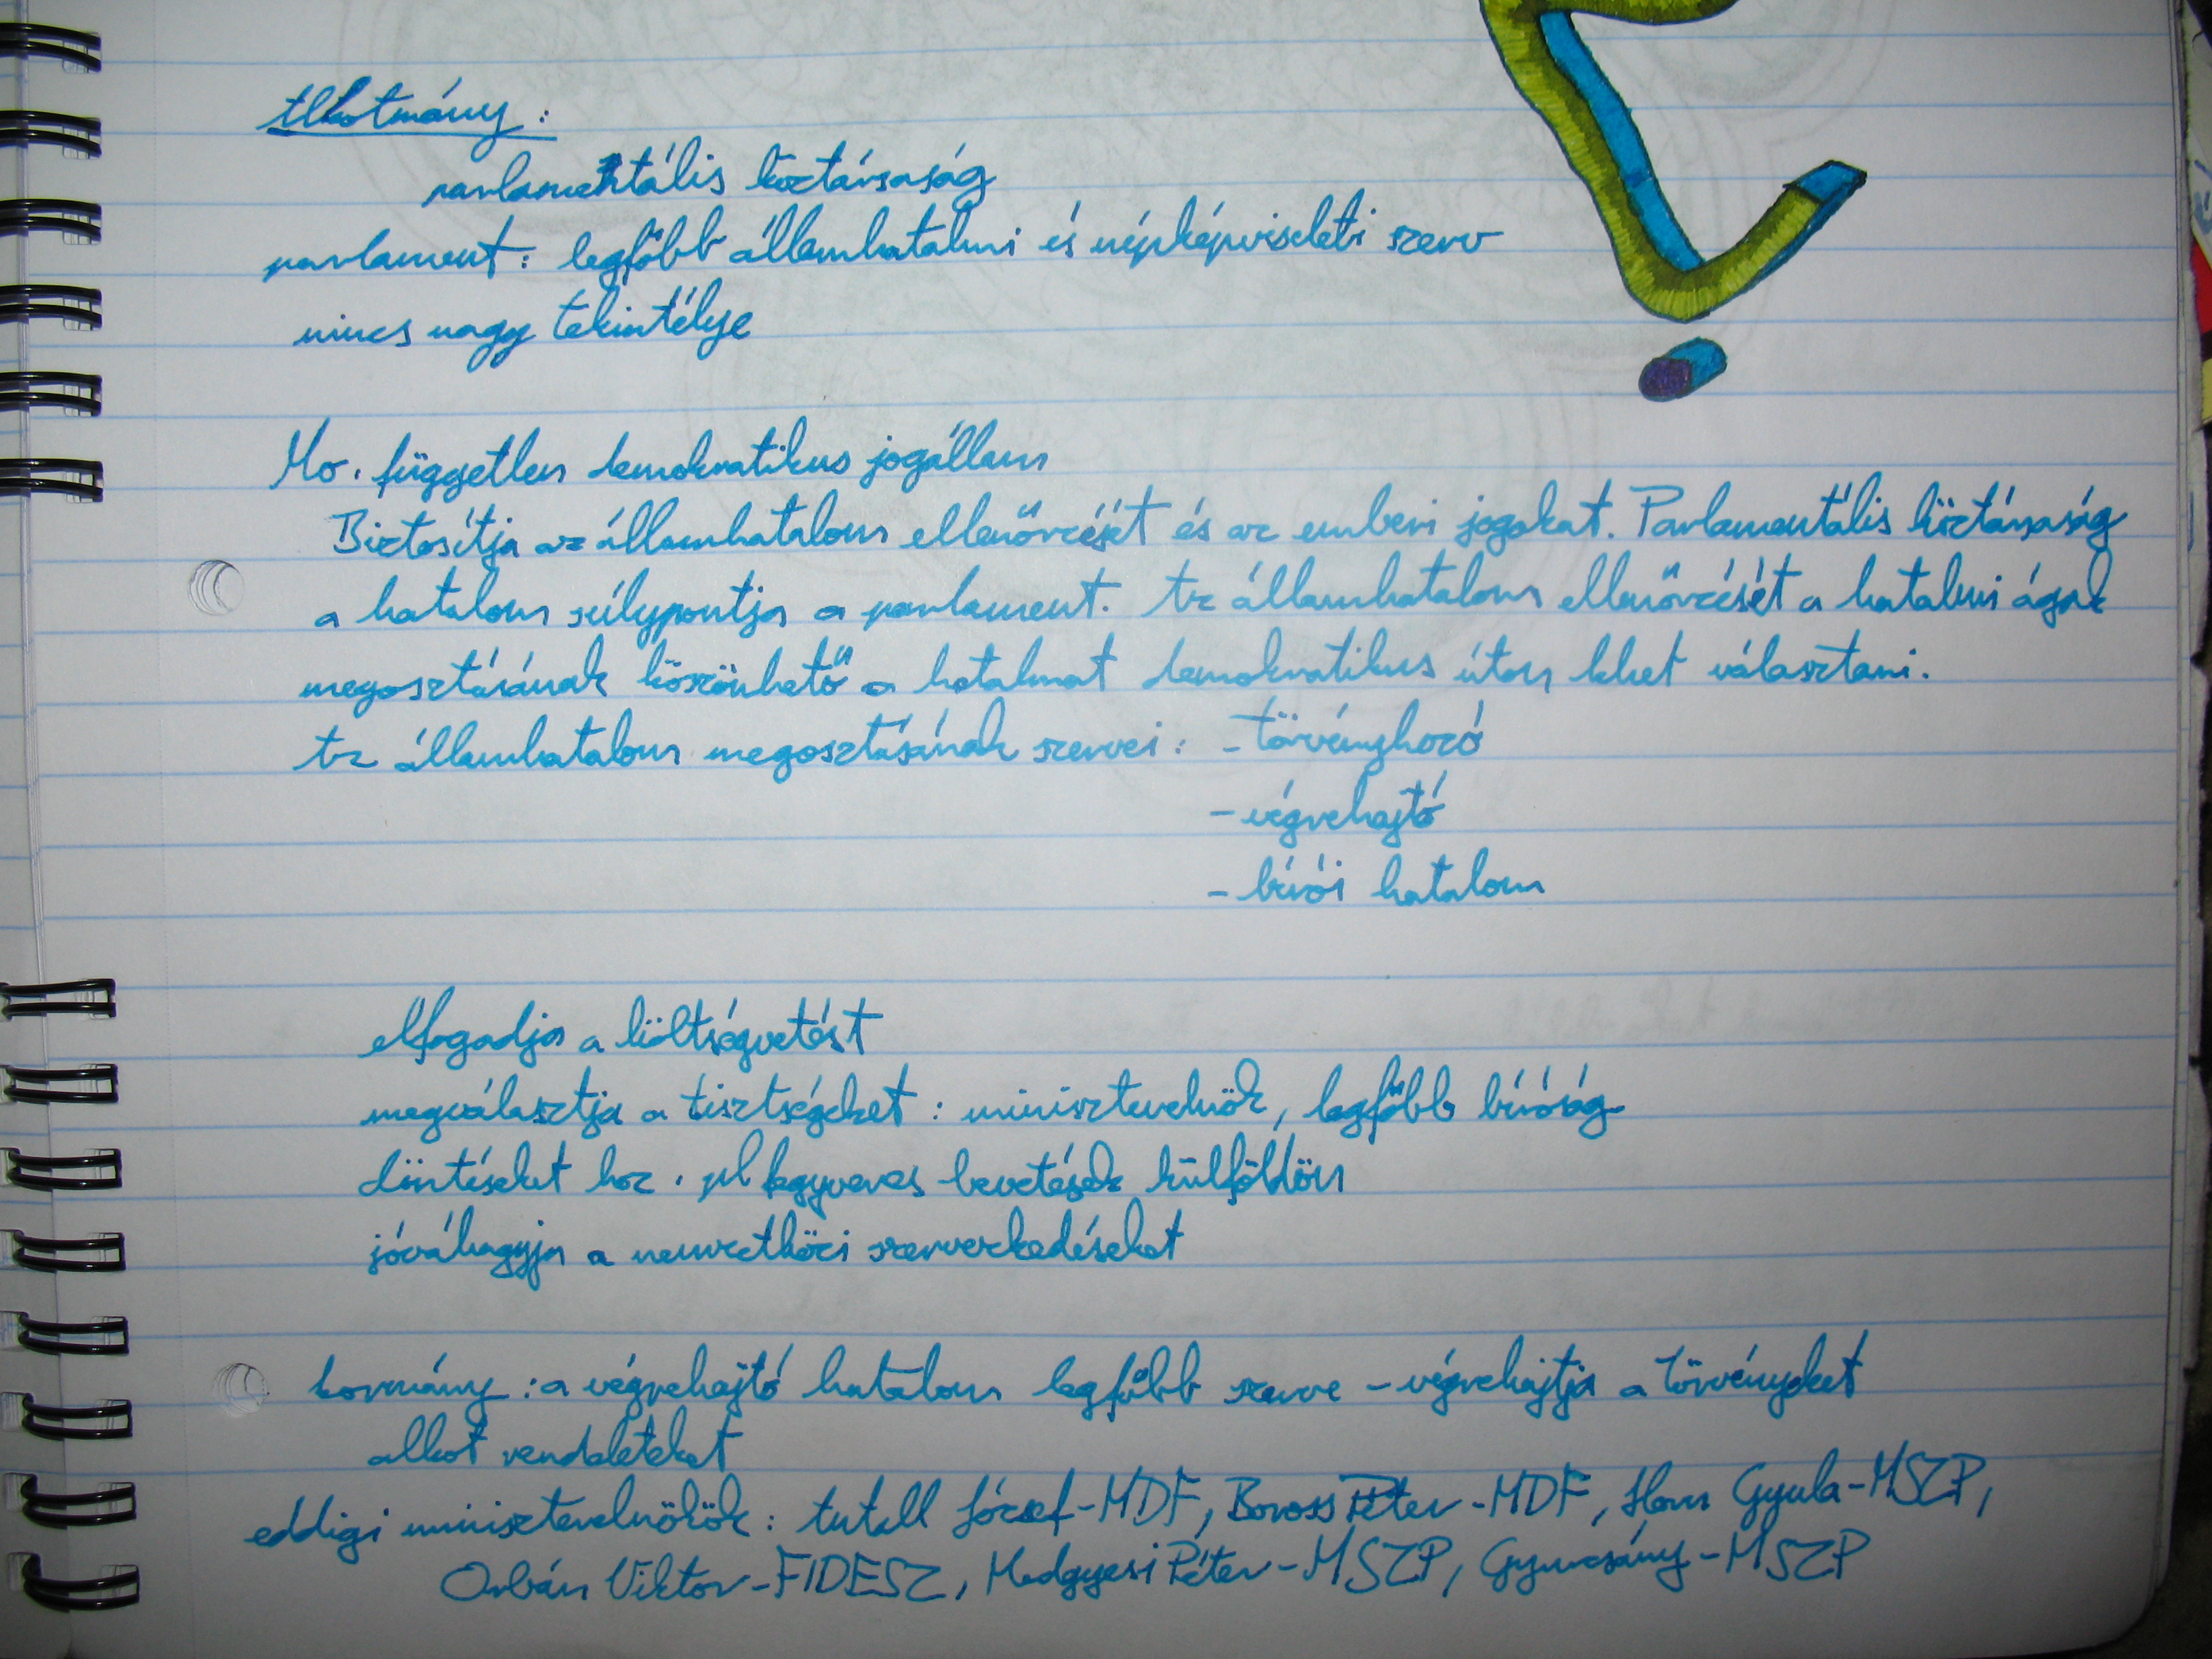 Alkotmány:
parlamentális köztársaság
parlament: legfőbb államhatalmi és népképviseleti szerv
nincs nagy tekintélye
Mo. független demokratikus jogállam
Biztosítja az államhatalom ellenőrzését és az emberi jogokat. Parlamentális köztársaság
a hatalom súlypontja a parlament. Az államhatalom ellenőrzését a hatalmi ágak
megosztásának köszönhető a hatalmat demokratikus úton lehet választani.
Az államhatalom megosztásának szervei: - törvényhozó
- végrehajtó
- bírói hatalom
elfogadja a költségvetést
megválasztja a tisztségeket: miniszterelnök, legfőbb bíróság
döntéseket hoz. pl fegyveres bevetések külföldön
jóváhagyja a nemzetközi szerverkedéseket
kormány: a végrehajtó hatalom legfőbb szerve - végrehajtja a törvényeket
alkot rendeleteket
eddigi miniszterelnökök: Antall József-MDF, Boross Péter-MDF, Horn Gyula-MSZP,
Orbán Viktor-FIDESZ, Medgyesi Péter-MSZP, Gyurcsány-MSZP